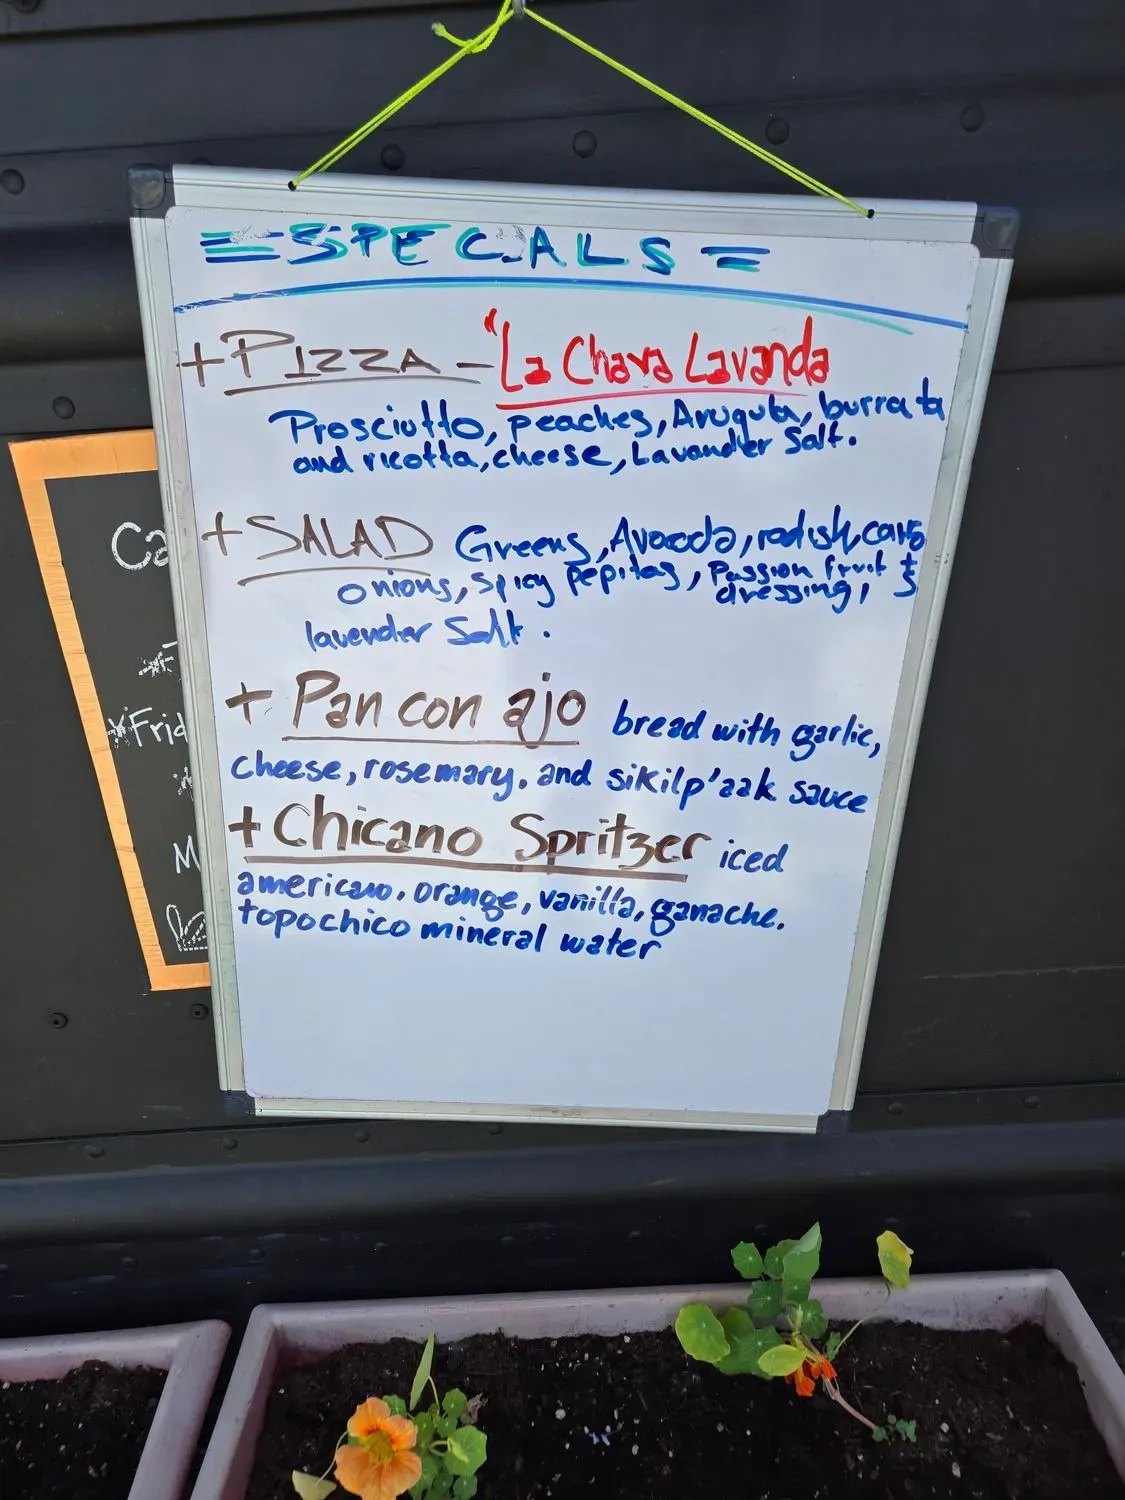 SPECIALS
+ PIZZA - "La Chava Lavanda
Prosciutto, peaches, Arugula, burrata
and ricotta, cheese, Lavander Salt.
+ SALAD Greens, Avocado, radish,
onions, spicy pepitas, Passion fruit
dressing,
lavender Salt.
+ Pan con ajo bread with garlic,
cheese, rosemary, and sikilp'aak sauce
+ Chicano Spritzer iced
americano, orange, vanilla, ganache.
topochico mineral water
Ca
Frid
M